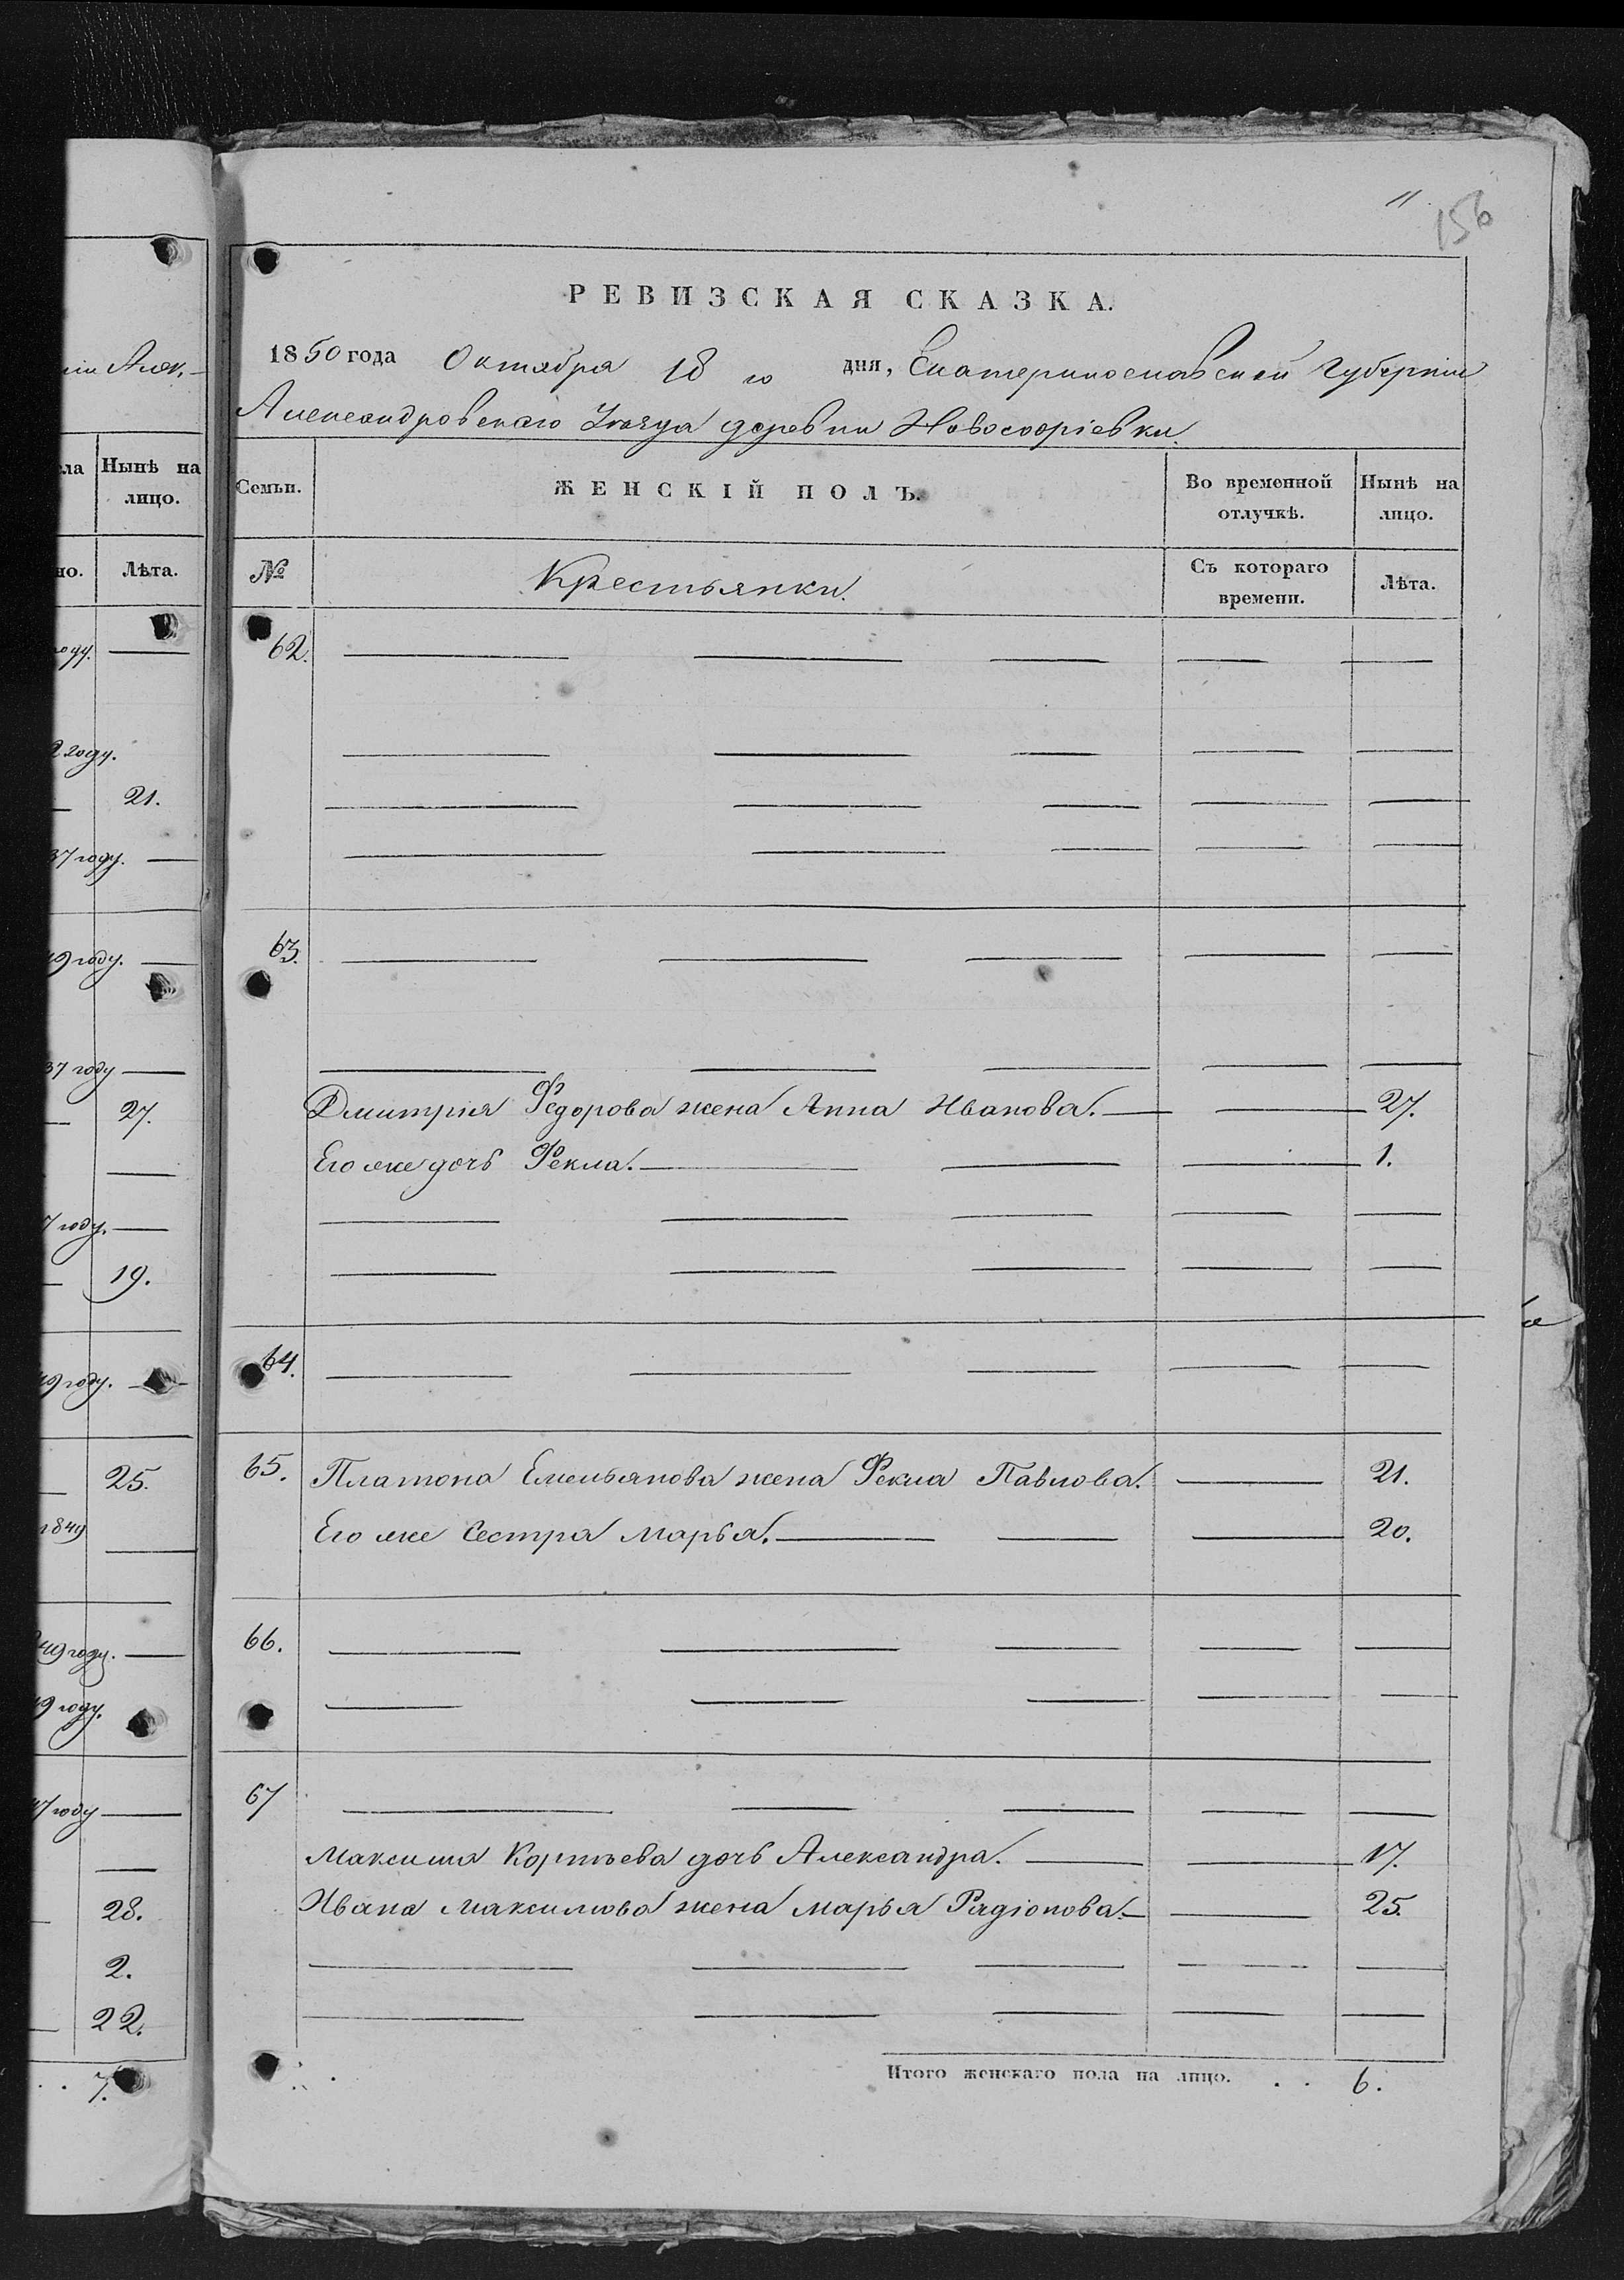 11
156
РЕВИЗСКАЯ СКАЗКА.
1850 года Октября 18 го дня, Екатеринославской Губерніи
Александровскаго Уѣзда деревни Новософіевки.
Семьи. ЖЕНСКІЙ ПОЛЪ. Во временной отлучкѣ. Нынѣ на лицо.
№ Крестьянки. Съ котораго времени. Лѣта.
62.
63.
Дмитрія Федорова жена Анна Иванова. 27.
Его же дочь Фекла. 1.
64.
65. Платона Емельянова жена Фекла Павлова. 21.
Его же Сестра Марья. 20.
66.
67
Максима Корнѣева дочь Александра. 17.
Ивана Максимова жена Марья Радіонова. 25.
Итого женскаго пола на лицо. . . 6.
Алек,
Нынѣ на
лицо.
Лѣта.
году.
21.
37 году.
году.
37 году
27.
7 году.
19.
году.
25.
1849
году.
году.
году
28.
2.
22.
7.